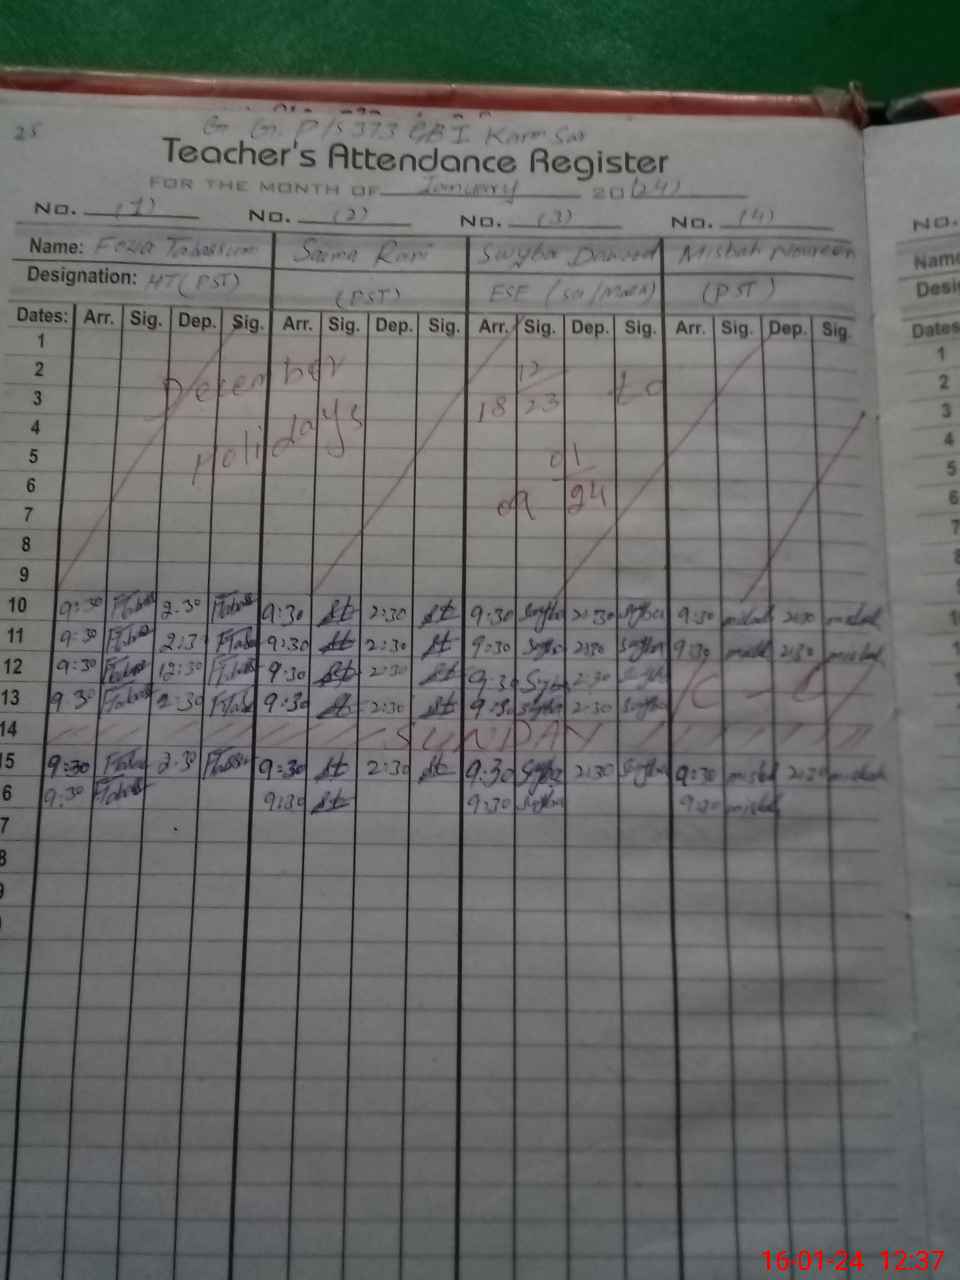 25
G. G. P/S 373 EB I Karm Sar
Teacher's Attendance Register
FOR THE MONTH OF January 20(24)
No. (1) No. (2) No. (3) No. (4) No.
Name: Fozia Tabassum Saima Rani Swyba Dawood Misbah Noureen Name
Designation: HT(PST) (PST) ESE (Sci/Math) (PST) Desig
Dates: Arr. Sig. Dep. Sig. Arr. Sig. Dep. Sig. Arr. Sig. Dep. Sig. Arr. Sig. Dep. Sig. Dates
1 1
2 December 12 2
3 18 23 to 3
4 Holidays 4
5 01 5
6 24 6
7 09 7
8
9 9
10 9:30 FTabass 2:30 FTabass 9:30 St 2:30 St 9:30 Swyba 2:30 Swyba 9:30 misbah 2:30 misbah
11 9:30 FTabass 2:3 FTabass 9:30 St 2:30 St 9:30 Swyba 2:30 Swyba 9:30 misbah 2:30 misbah
12 9:30 FTabass 12:30 FTabass 9:30 St 2:30 St 9:30 Swyba 2:30 Swyba
13 9:30 FTabass 2:30 FTabass 9:30 St 2:30 St 9:30 Swyba 2:30 Swyba C - L
14 SUNDAY
15 9:30 FTabass 2:30 FTabass 9:30 St 2:30 St 9:30 Swyba 2:30 Swyba 9:30 misbah 2:30 misbah
6 9:30 FTabass 9:30 St 9:30 Swyba 9:30 misbah
7
8
9
16-01-24 12:37